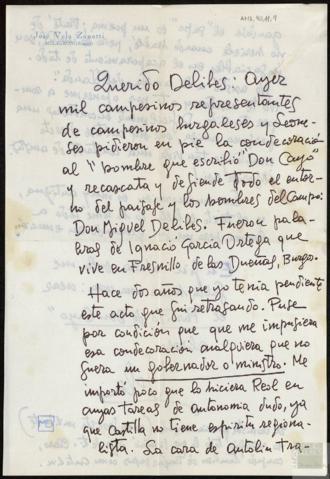 AMD,43,11,9
José Vela Zanetti
Querido Delibes: Ayer
mil campesinos representantes
de campesinos burgaleses y Leone-
ses pidieron en pie la condecoració
al "hombre que escribió "Don Cayo"
y rescata y defiende todo el entor-
no del paisaje y los hombres del Campo:
Don Miguel Delibes. Fueron pala-
bras de Ignacio García Ortega que
vive en Fresnillo de las Dueñas, Burgos.
Hace dos años que yo tenía pendiente
este acto que fuí retrasando. Puse
por condición que que me impusiera
esa condecoración cualquiera que no
fuera un gobernador o ministro. Me
importó poco que lo hiciera Real en
cuyas tareas de autonomía dudo, ya
que Castilla no tiene espíritu regiona-
lista. La cara de Antolín tra-